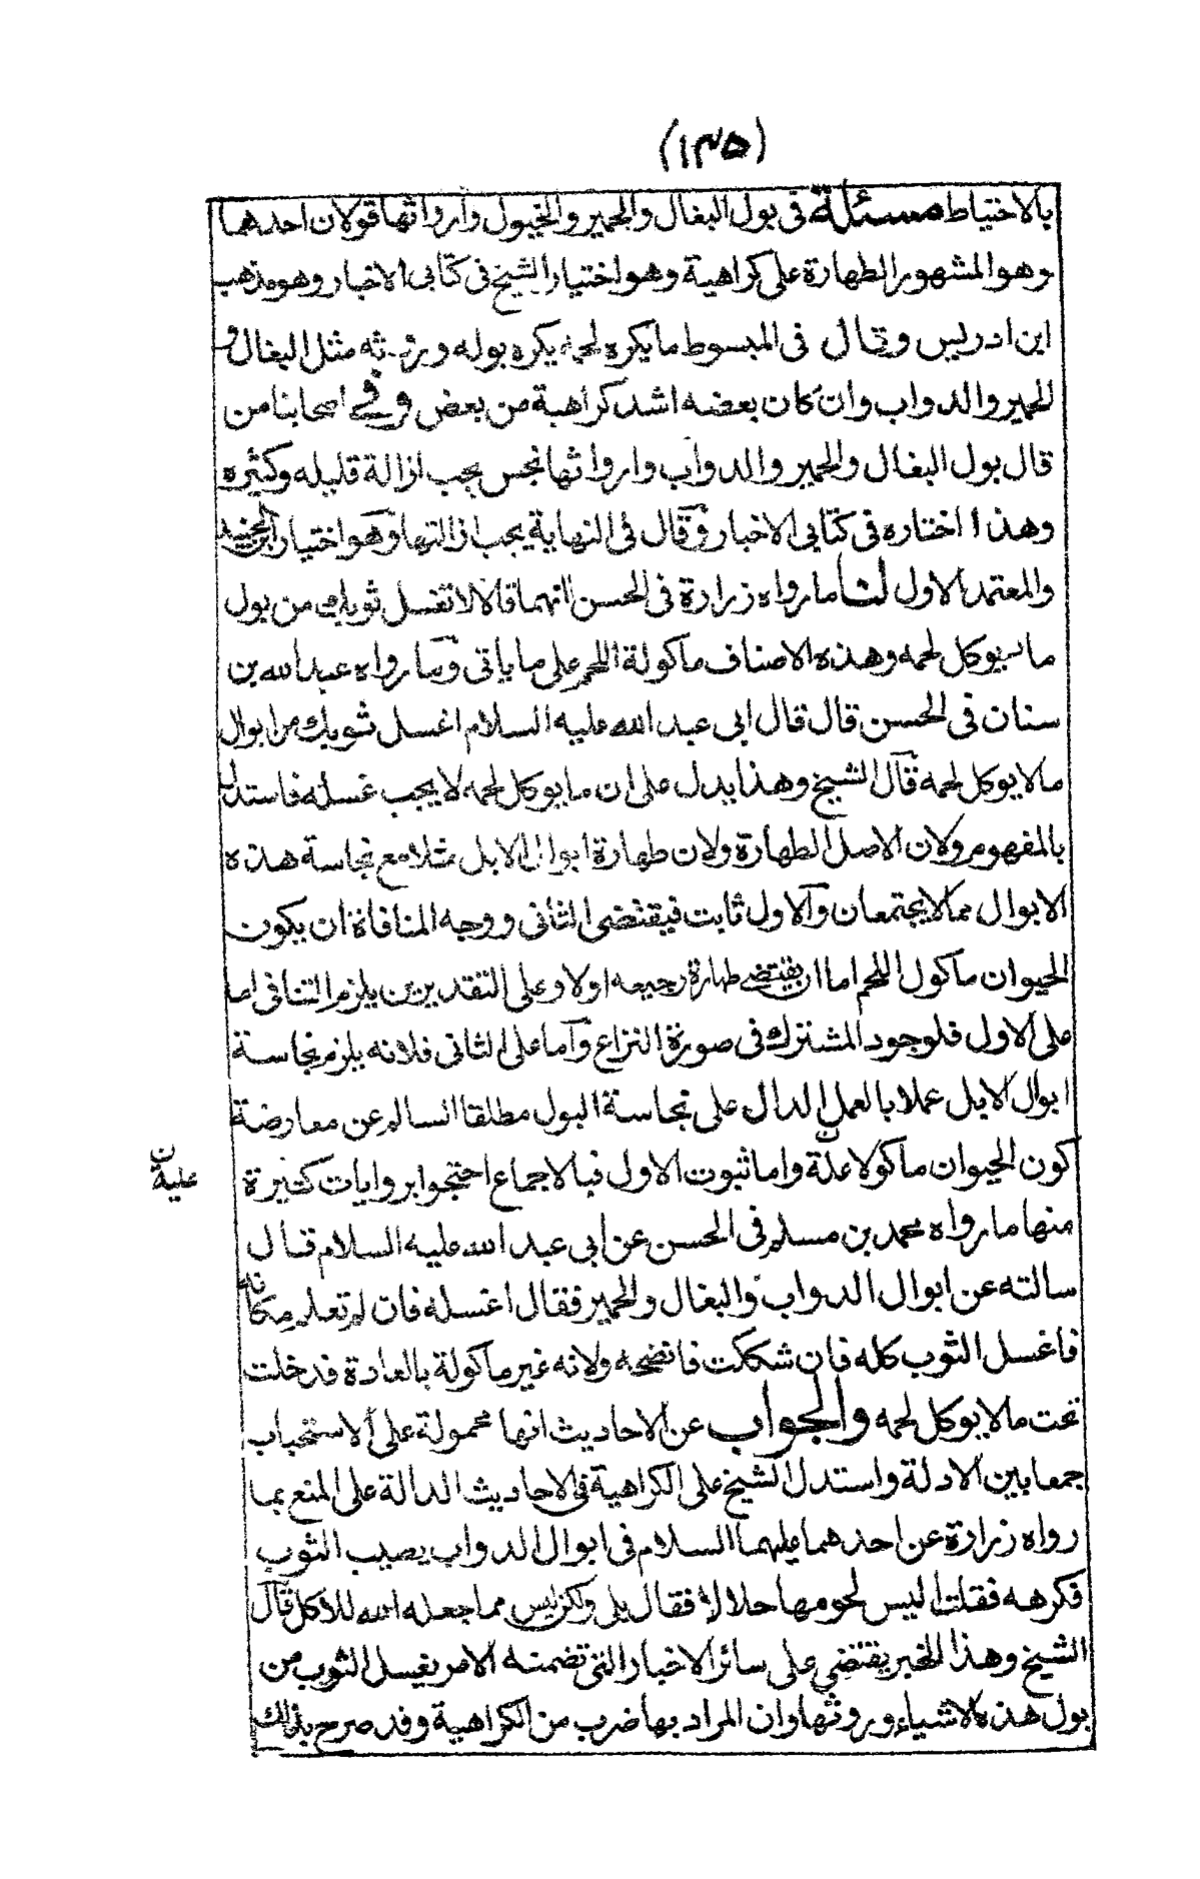 (١٣٥)
بالاحتياط مسئلة فى بول البغال والحمير والخيول وارواثها قولان احدهما
وهو المشهور الطهارة على كراهية وهو اختيار الشيخ فى كتابى الاخبار وهو مذهب
ابن ادريس وقال فى المبسوط ما يكره لحمه يكره بوله وروثه مثل البغال و
الحمير والدواب وان كان بعضه اشد كراهية من بعض وفي اصحابنا من
قال بول البغال والحمير والدواب وارواثها نجس يجب ازالة قليله وكثيره
وهذا اختاره فى كتابى الاخبار وقال فى النهاية يجب ازالتها وهو اختيار ابن الجنيد
والمعتمد الاول لنا ما رواه زرارة فى الحسن انهما قالا لا تغسل ثوبك من بول
ما يوكل لحمه وهذه الاصناف ماكولة اللحم على ما ياتى وبما رواه عبد الله بن
سنان فى الحسن قال قال ابى عبد الله عليه السلام اغسل ثوبك من ابوال
ما لا يوكل لحمه قال الشيخ وهذا يدل على ان ما يوكل لحمه لا يجب غسله فاستدل
بالمفهوم ولان الاصل الطهارة ولان طهارة ابوال الابل مثلا مع نجاسة هذه
الابوال مما لا يجتمعان والاول ثابت فيقتضى الثانى ووجه المنافاة ان يكون
الحيوان ماكول اللحم اما ان يقتضے طهارة رجيعه اولا وعلى التقديرين يلزم التنافى اما
على الاول فلوجود المشترك فى صورة النزاع واما على الثانى فلانه يلزم نجاسة
ابوال الابل عملا بالعمل الدال على نجاسة البول مطلقا السالم عن معارضة
كون الحيوان ماكولا علة واما ثبوت الاول فبالاجماع احتجوا بروايات كثيرة
علية ن
منها ما رواه محمد بن مسلم فى الحسن عن ابى عبد الله عليه السلام قال
سالته عن ابوال الدواب والبغال والحمير فقال اغسله فان لم تعلم مكانه
فاغسل الثوب كله فان شككت فانضحه ولانه غير ماكولة بالعادة فدخلت
تحت ما لا يوكل لحمه والجواب عن الاحاديث انها محمولة على الاستحباب
جمعا بين الادلة واستدل الشيخ على الكراهية فى الاحاديث الدالة على المنع بما
رواه زرارة عن احدهما عليهما السلام فى ابوال الدواب يصيب الثوب
فكرهه فقلت اليس لحومها حلالا فقال بلى ولكن ليس مما جعله الله للاكل قال
الشيخ وهذا الخبر يقتضي على سائر الاخبار التى تضمنه الامر بغسل الثوب من
بول هذه الاشياء وروثها وان المراد بها ضرب من الكراهية وقد صرح بذلك